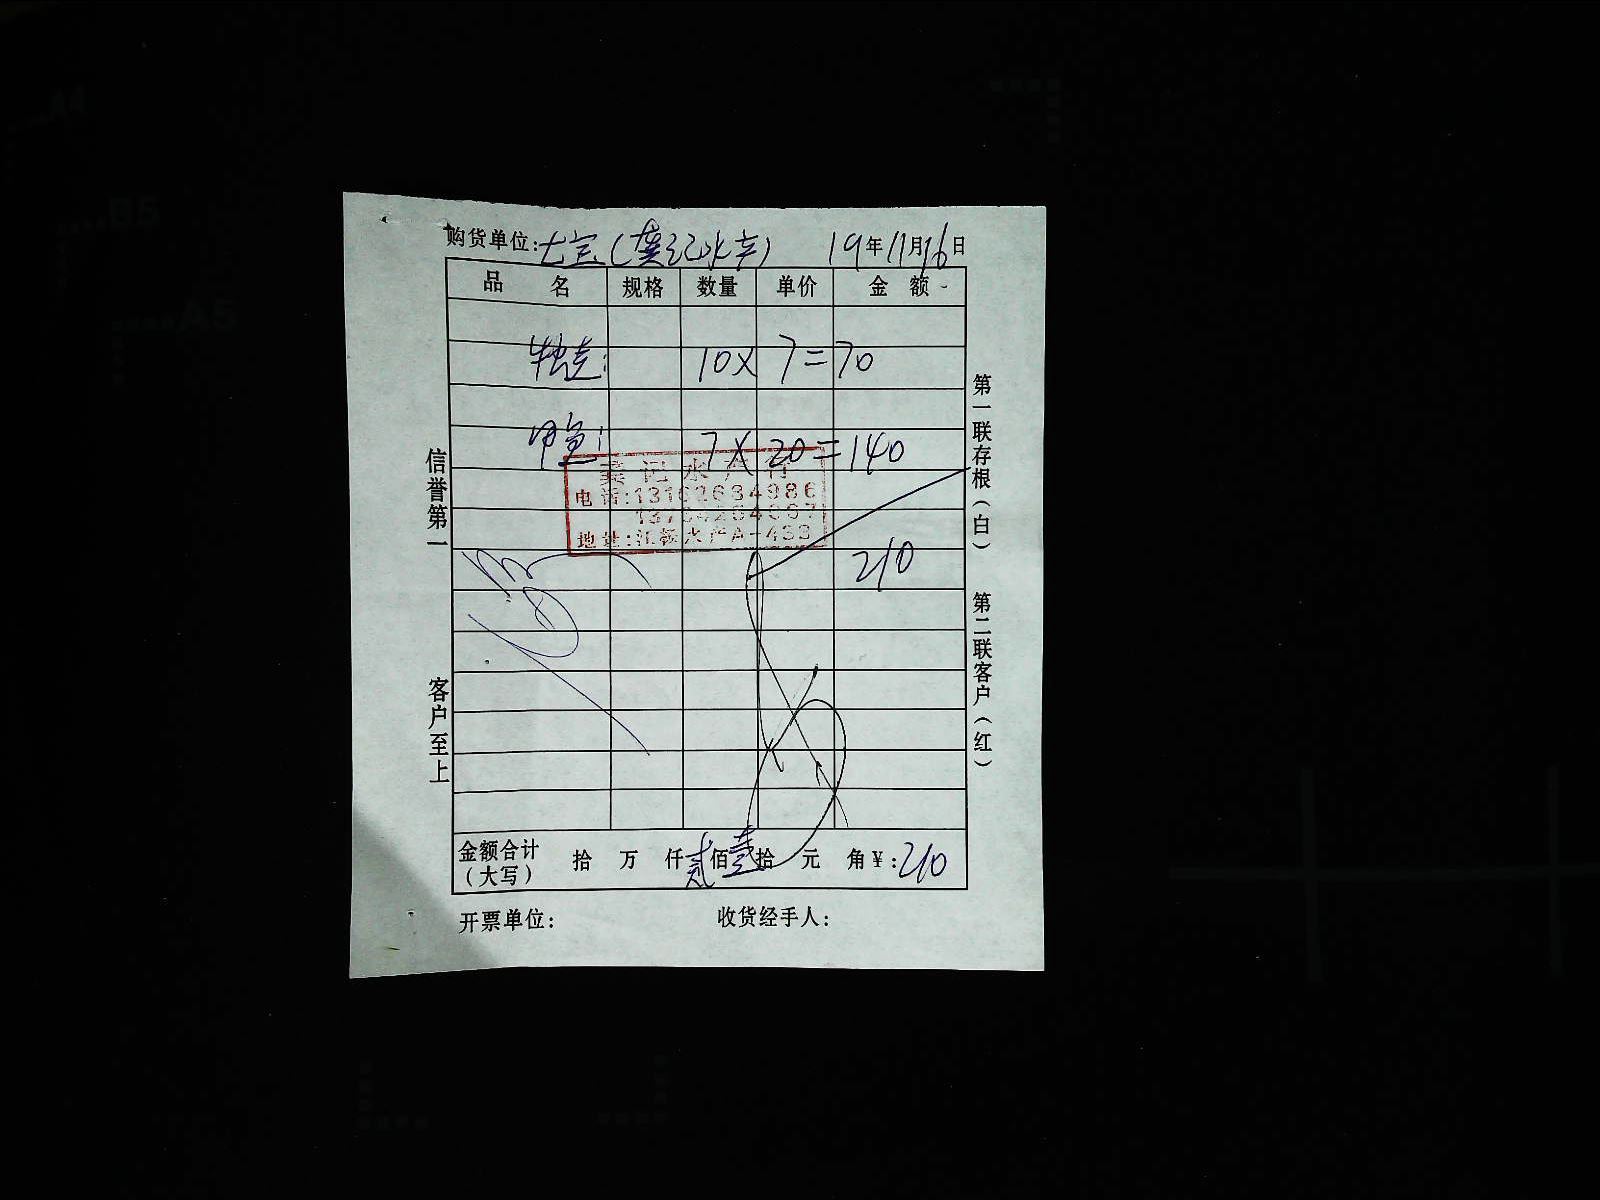 购货单位:七宝(龚记水产) 19年11月16日
品 名 规格 数量 单价 金 额
10 X 7 = 70
甲鱼: 7 X 20 = 140
龚记水产行
电话:
地址: 水产A-433
210
金额合计(大写) 拾 万 仟 贰佰壹拾 元 角 ¥:210
开票单位: 收货经手人:
信誉第一 客户至上
第一联存根(白) 第二联客户(红)